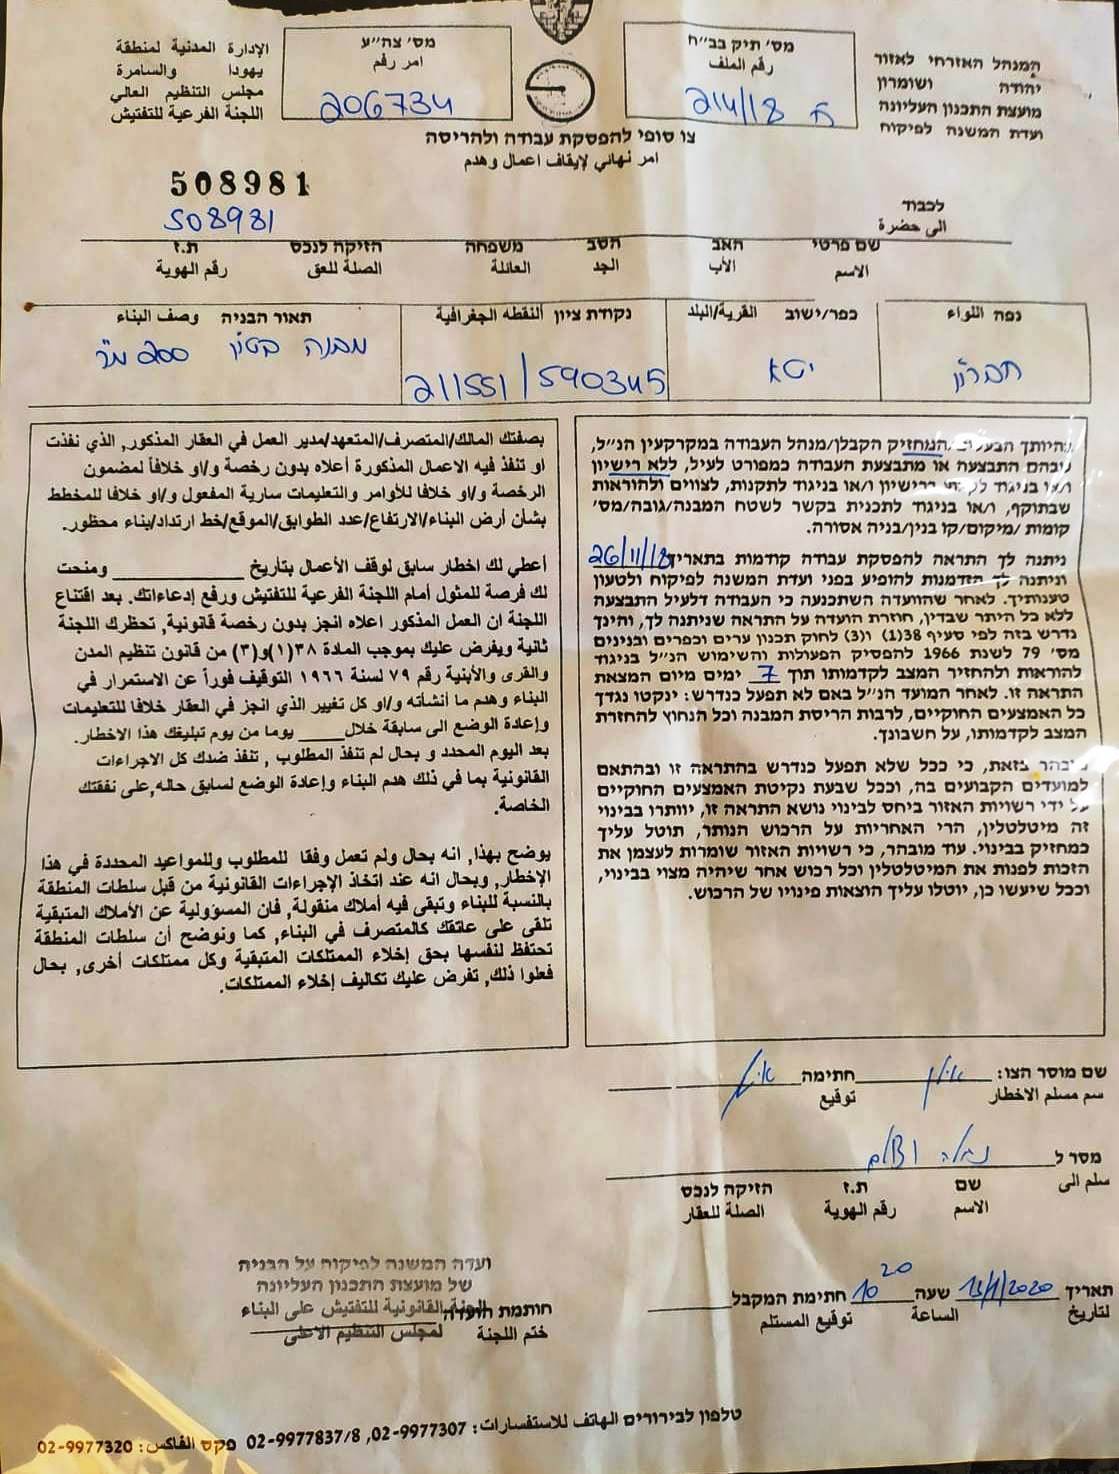 המנהל האזרחי לאזור
יהודה ושומרון
מועצת התכנון העליונה
ועדת המשנה לפיקוח
מס׳ תיק בב״ח
رقم الملف
214/18 ח
מס׳ צה״ע
امر رقم
206734
الإدارة المدنية لمنطقة
يهودا والسامرة
مجلس التنظيم العالي
اللجنة الفرعية للتفتيش
צו סופי להפסקת עבודה ולהריסה
امر نهائي لإيقاف اعمال وهدم
508981
508981
לכבוד
الى حضرة
שם פרטי האב הסב משפחה הזיקה לנכס ת.ז
الاسم الأب الجد العائلة الصلة للعق رقم الهوية
נפה اللواء
חברון
כפר/ישוב القرية/البلد
יטא
נקודת ציון النقطه الجغرافية
211551/590345
תאור הבניה وصف البناء
מבנה בטון 200 מ״ר
בהיותך הבעלים/המחזיק הקבלן/מנהל העבודה במקרקעין הנ״ל,
שבהם התבצעה או מתבצעת העבודה כמפורט לעיל, ללא רישיון
ו/או בניגוד לתנאי ברישיון ו/או בניגוד לתקנות, לצווים ולהוראות
שבתוקף, ו/או בניגוד לתכנית בקשר לשטח המבנה/גובה/מס׳
קומות /מיקום/קו בנין/בניה אסורה.
ניתנה לך התראה להפסקת עבודה קודמות בתאריך 26/11/18
וניתנה לך הזדמנות להופיע בפני ועדת המשנה לפיקוח ולטעון
טענותיך. לאחר שהוועדה השתכנעה כי העבודה דלעיל התבצעה
ללא כל היתר שבדין, חוזרת הועדה על התראה שניתנה לך, והינך
נדרש בזה לפי סעיף 38(1) ו(3) לחוק תכנון ערים וכפרים ובנינים
מס׳ 79 לשנת 1966 להפסיק הפעולות והשימוש הנ״ל בניגוד
להוראות ולהחזיר המצב לקדמותו תוך 7 ימים מיום המצאת
התראה זו. לאחר המועד הנ״ל באם לא תפעל כנדרש: ינקטו נגדך
כל האמצעים החוקיים, לרבות הריסת המבנה וכל הנחוץ להחזרת
המצב לקדמותו, על חשבונך.
מובהר בזאת, כי ככל שלא תפעל כנדרש בהתראה זו ובהתאם
למועדים הקבועים בה, וככל שבעת נקיטת האמצעים החוקיים
על ידי רשויות האזור ביחס לבינוי נושא התראה זו, יוותרו בבינוי
זה מיטלטלין, הרי האחריות על הרכוש הנותר, תוטל עליך
כמחזיק בבינוי. עוד מובהר, כי רשויות האזור שומרות לעצמן את
הזכות לפנות את המיטלטלין וכל רכוש אחר שיהיה מצוי בבינוי,
וככל שיעשו כן, יוטלו עליך הוצאות פינויו של הרכוש.
بصفتك المالك/المتصرف/المتعهد/مدير العمل في العقار المذكور, الذي نفذت
او تنفذ فيه الاعمال المذكورة أعلاه بدون رخصة و/او خلافاً لمضمون
الرخصة و/او خلافا للأوامر والتعليمات سارية المفعول و/او خلافا للمخطط
بشأن أرض البناء/الارتفاع/عدد الطوابق/الموقع/خط ارتداد/بناء محظور.
أعطي لك اخطار سابق لوقف الأعمال بتاريخ ______ ومنحت
لك فرصة للمثول أمام اللجنة الفرعية للتفتيش ورفع إدعاءاتك. بعد اقتناع
اللجنة ان العمل المذكور اعلاه انجز بدون رخصة قانونية, تحظرك اللجنة
ثانية ويفرض عليك بموجب المادة ٣٨(١)و(٣) من قانون تنظيم المدن
والقرى والأبنية رقم ٧٩ لسنة ١٩٦٦ التوقيف فوراً عن الاستمرار في
البناء وهدم ما أنشأته و/او كل تغيير الذي انجز في العقار خلافا للتعليمات
وإعادة الوضع الى سابقة خلال____ يوما من يوم تبليغك هذا الاخطار.
بعد اليوم المحدد و بحال لم تنفذ المطلوب , تنفذ ضدك كل الاجراءات
القانونية بما في ذلك هدم البناء وإعادة الوضع لسابق حاله,على نفقتك
الخاصة.
يوضح بهذا, انه بحال ولم تعمل وفقا للمطلوب وللمواعيد المحددة في هذا
الإخطار, وبحال انه عند اتخاذ الإجراءات القانونية من قبل سلطات المنطقة
بالنسبة للبناء وتبقى فيه أملاك منقولة, فان المسؤولية عن الأملاك المتبقية
تلقى على عاتقك كالمتصرف في البناء, كما ونوضح أن سلطات المنطقة
تحتفظ لنفسها بحق إخلاء الممتلكات المتبقية وكل ممتلكات أخرى, بحال
فعلوا ذلك, تفرض عليك تكاليف إخلاء الممتلكات.
שם מוסר הצו: חתימה
سم مسلم الاخطار توقيع
מסר ל
سلم الى
שם ת.ז הזיקה לנכס
الاسم رقم الهوية الصلة للعقار
תאריך 13/1/2020 שעה 10 20 חתימת המקבל
لتاريخ الساعة توقيع المستلم
ועדת המשנה לפיקוח על הבניה
של מועצת התכנון העליונה
اللجنة القانونية للتفتيش على البناء
لمجلس التنظيم الاعلى
חותמת הועדה
ختم اللجنة
טלפון לבירורים الهاتف للاستفسارات: 02-9977307, 02-9977837/8 פקס الفاكس: 02-9977320